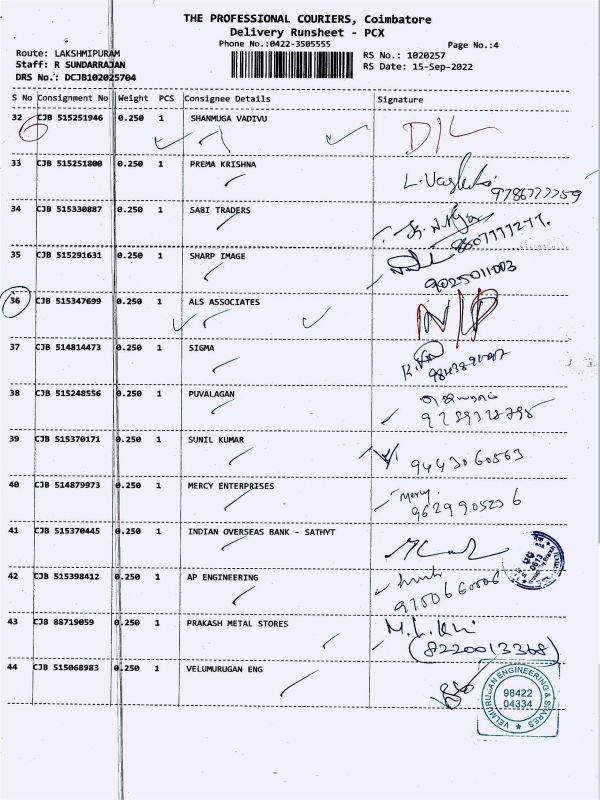 THE PROFESSIONAL COURIERS, Coimbatore
Delivery Runsheet - PCX
Phone No.:0422-3505555 Page No.:4
Route: LAKSHMIPURAM RS No.: 1020257
Staff: R SUNDARRAJAN RS Date: 15-Sep-2022
DRS No.: DCJB102025704
S No Consignment No Weight PCS Consignee Details Signature
32 CJB 515251946 0.250 1 SHANMUGA VADIVU D/L
33 CJB 515251800 0.250 1 PREMA KRISHNA
34 CJB 515330887 0.250 1 SABI TRADERS
35 CJB 515291631 0.250 1 SHARP IMAGE 9025011003
36 CJB 515347699 0.250 1 ALS ASSOCIATES N/P
37 CJB 514814473 0.250 1 SIGMA
38 CJB 515248556 0.250 1 PUVALAGAN
39 CJB 515370171 0.250 1 SUNIL KUMAR 9443060563
40 CJB 514879973 0.250 1 MERCY ENTERPRISES Mercy
9629905236
41 CJB 515370445 0.250 1 INDIAN OVERSEAS BANK - SATHYT
42 CJB 515398412 0.250 1 AP ENGINEERING
43 CJB 88719059 0.250 1 PRAKASH METAL STORES
(8220013368)
44 CJB 515068983 0.250 1 VELUMURUGAN ENG
VELMURUGAN ENGINEERING & SPARES
98422
04334